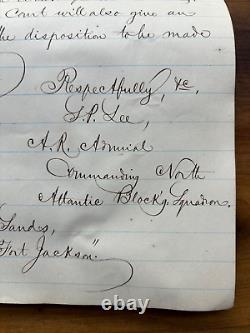 Court will also give an
the disposition to be made
Respectfully, &c,
S. P. Lee,
A. R. Admiral
Commanding North
Atlantic Block'g Squadron.
Sands,
Fort Jackson."